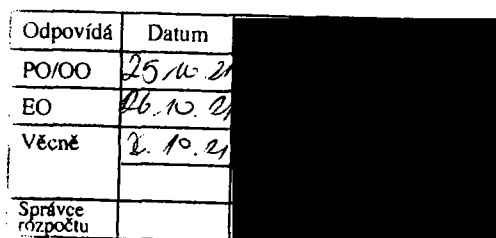 Odpovídá Datum
PO/OO 25.10.21
EO 26.10.21
Věcně 2.10.21
Správce
rozpočtu